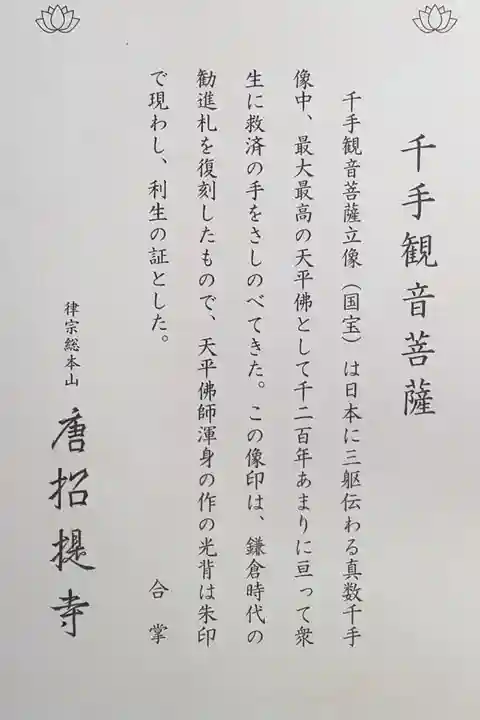 千手観音菩薩
千手観音菩薩立像（国宝）は日本に三躯伝わる真数千手
像中、最大最高の天平佛として千二百年あまりに亘って衆
生に救済の手をさしのべてきた。この像印は、鎌倉時代の
勧進札を復刻したもので、天平佛師渾身の作の光背は朱印
で現わし、利生の証とした。
合掌
律宗総本山 唐招提寺